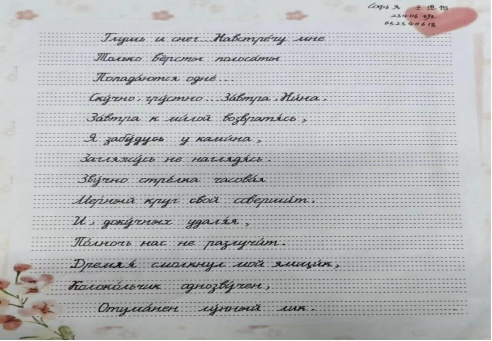 Софья 王思彤
Глушь и снег... Навстре́чу мне
Только вёрсты полоса́ты
Попада́ются одне́...
Ску́чно, гру́стно... За́втра, Ни́на,
За́втра к ми́лой возвратя́сь,
Я забу́дусь у ками́на,
Загляжу́сь не наглядя́сь.
Зву́чно стре́лка часова́я
Мерный круг свой соверши́т.
И, доку́чных удаля́я,
По́лночь нас не разлучи́т.
Дремля́ смолкнул мой ямщи́к,
Колоко́льчик однозву́чен,
Отума́нен лу́нный лик.